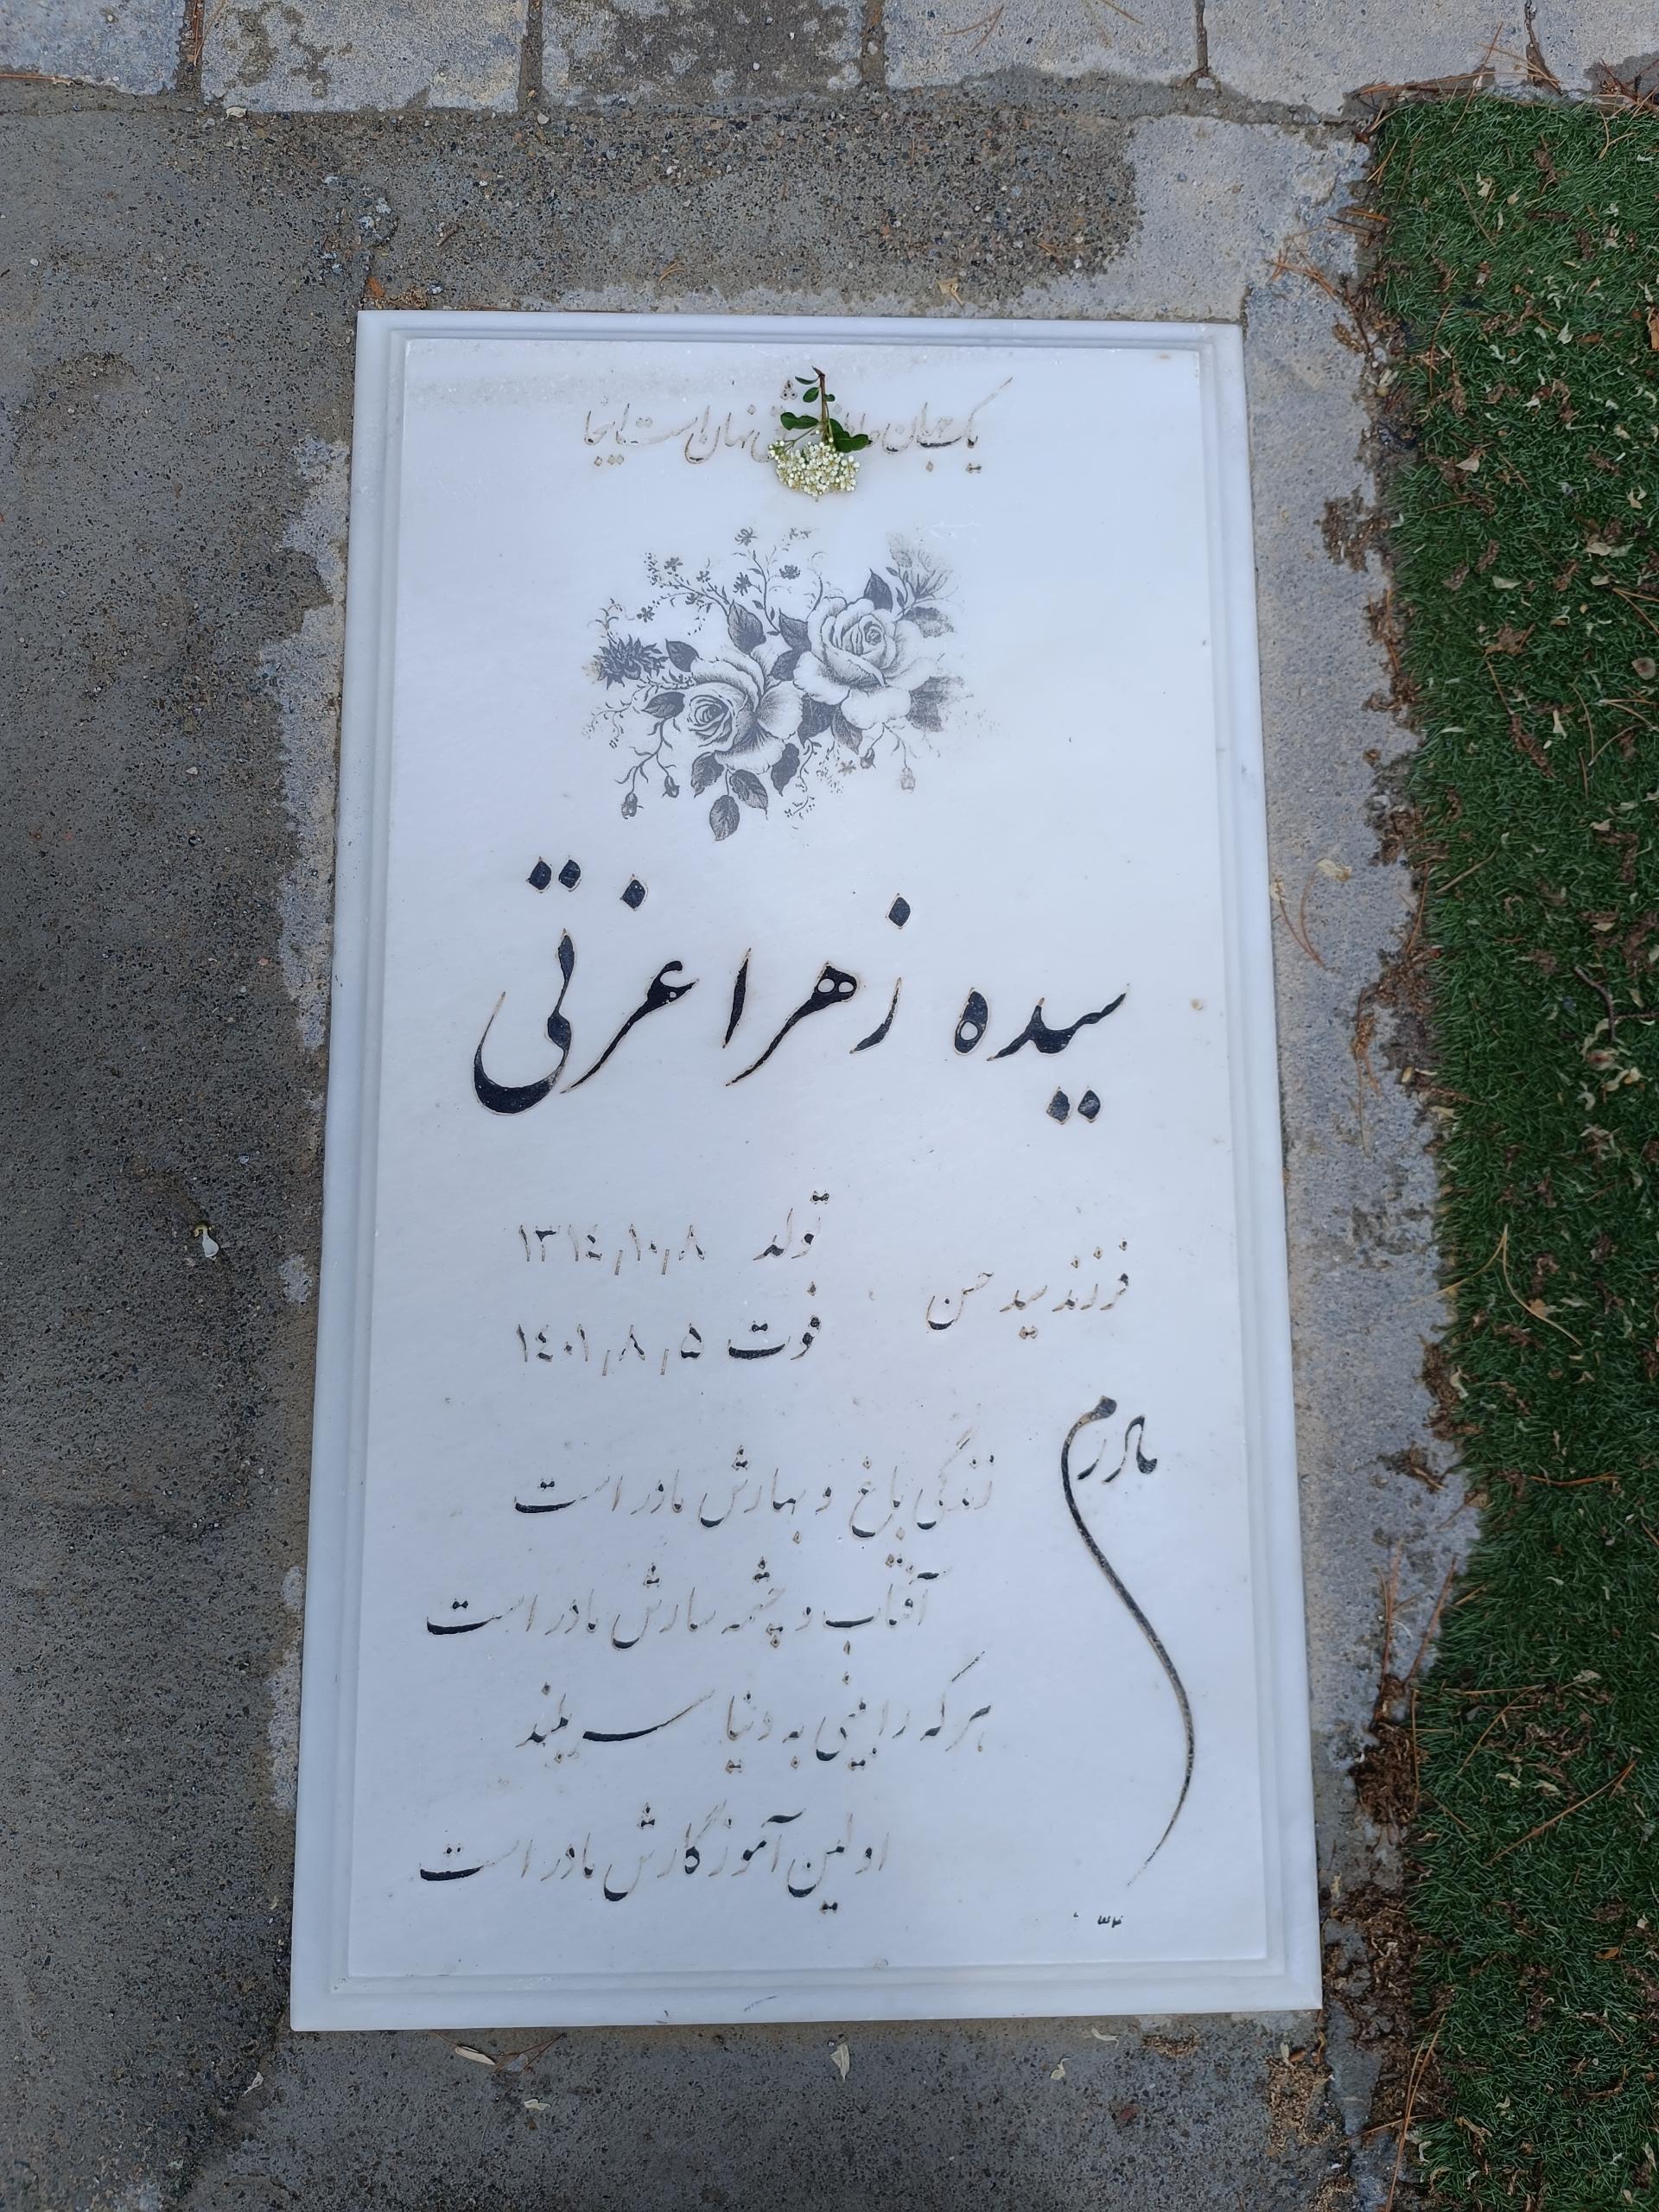 یک جهان نهان است اینجا
سیده زهرا عزتی
فرزند سید حسن
تولد ۱۳۱٤٫۱۰٫۸
فوت ۱٤۰۱٫۸٫۵
مادرم
زندگی باغ و بهارش مادر است
آفتاب و چشمه سارش مادر است
هر که را بینی به دنیا سربلند
اولین آموزگارش مادر است